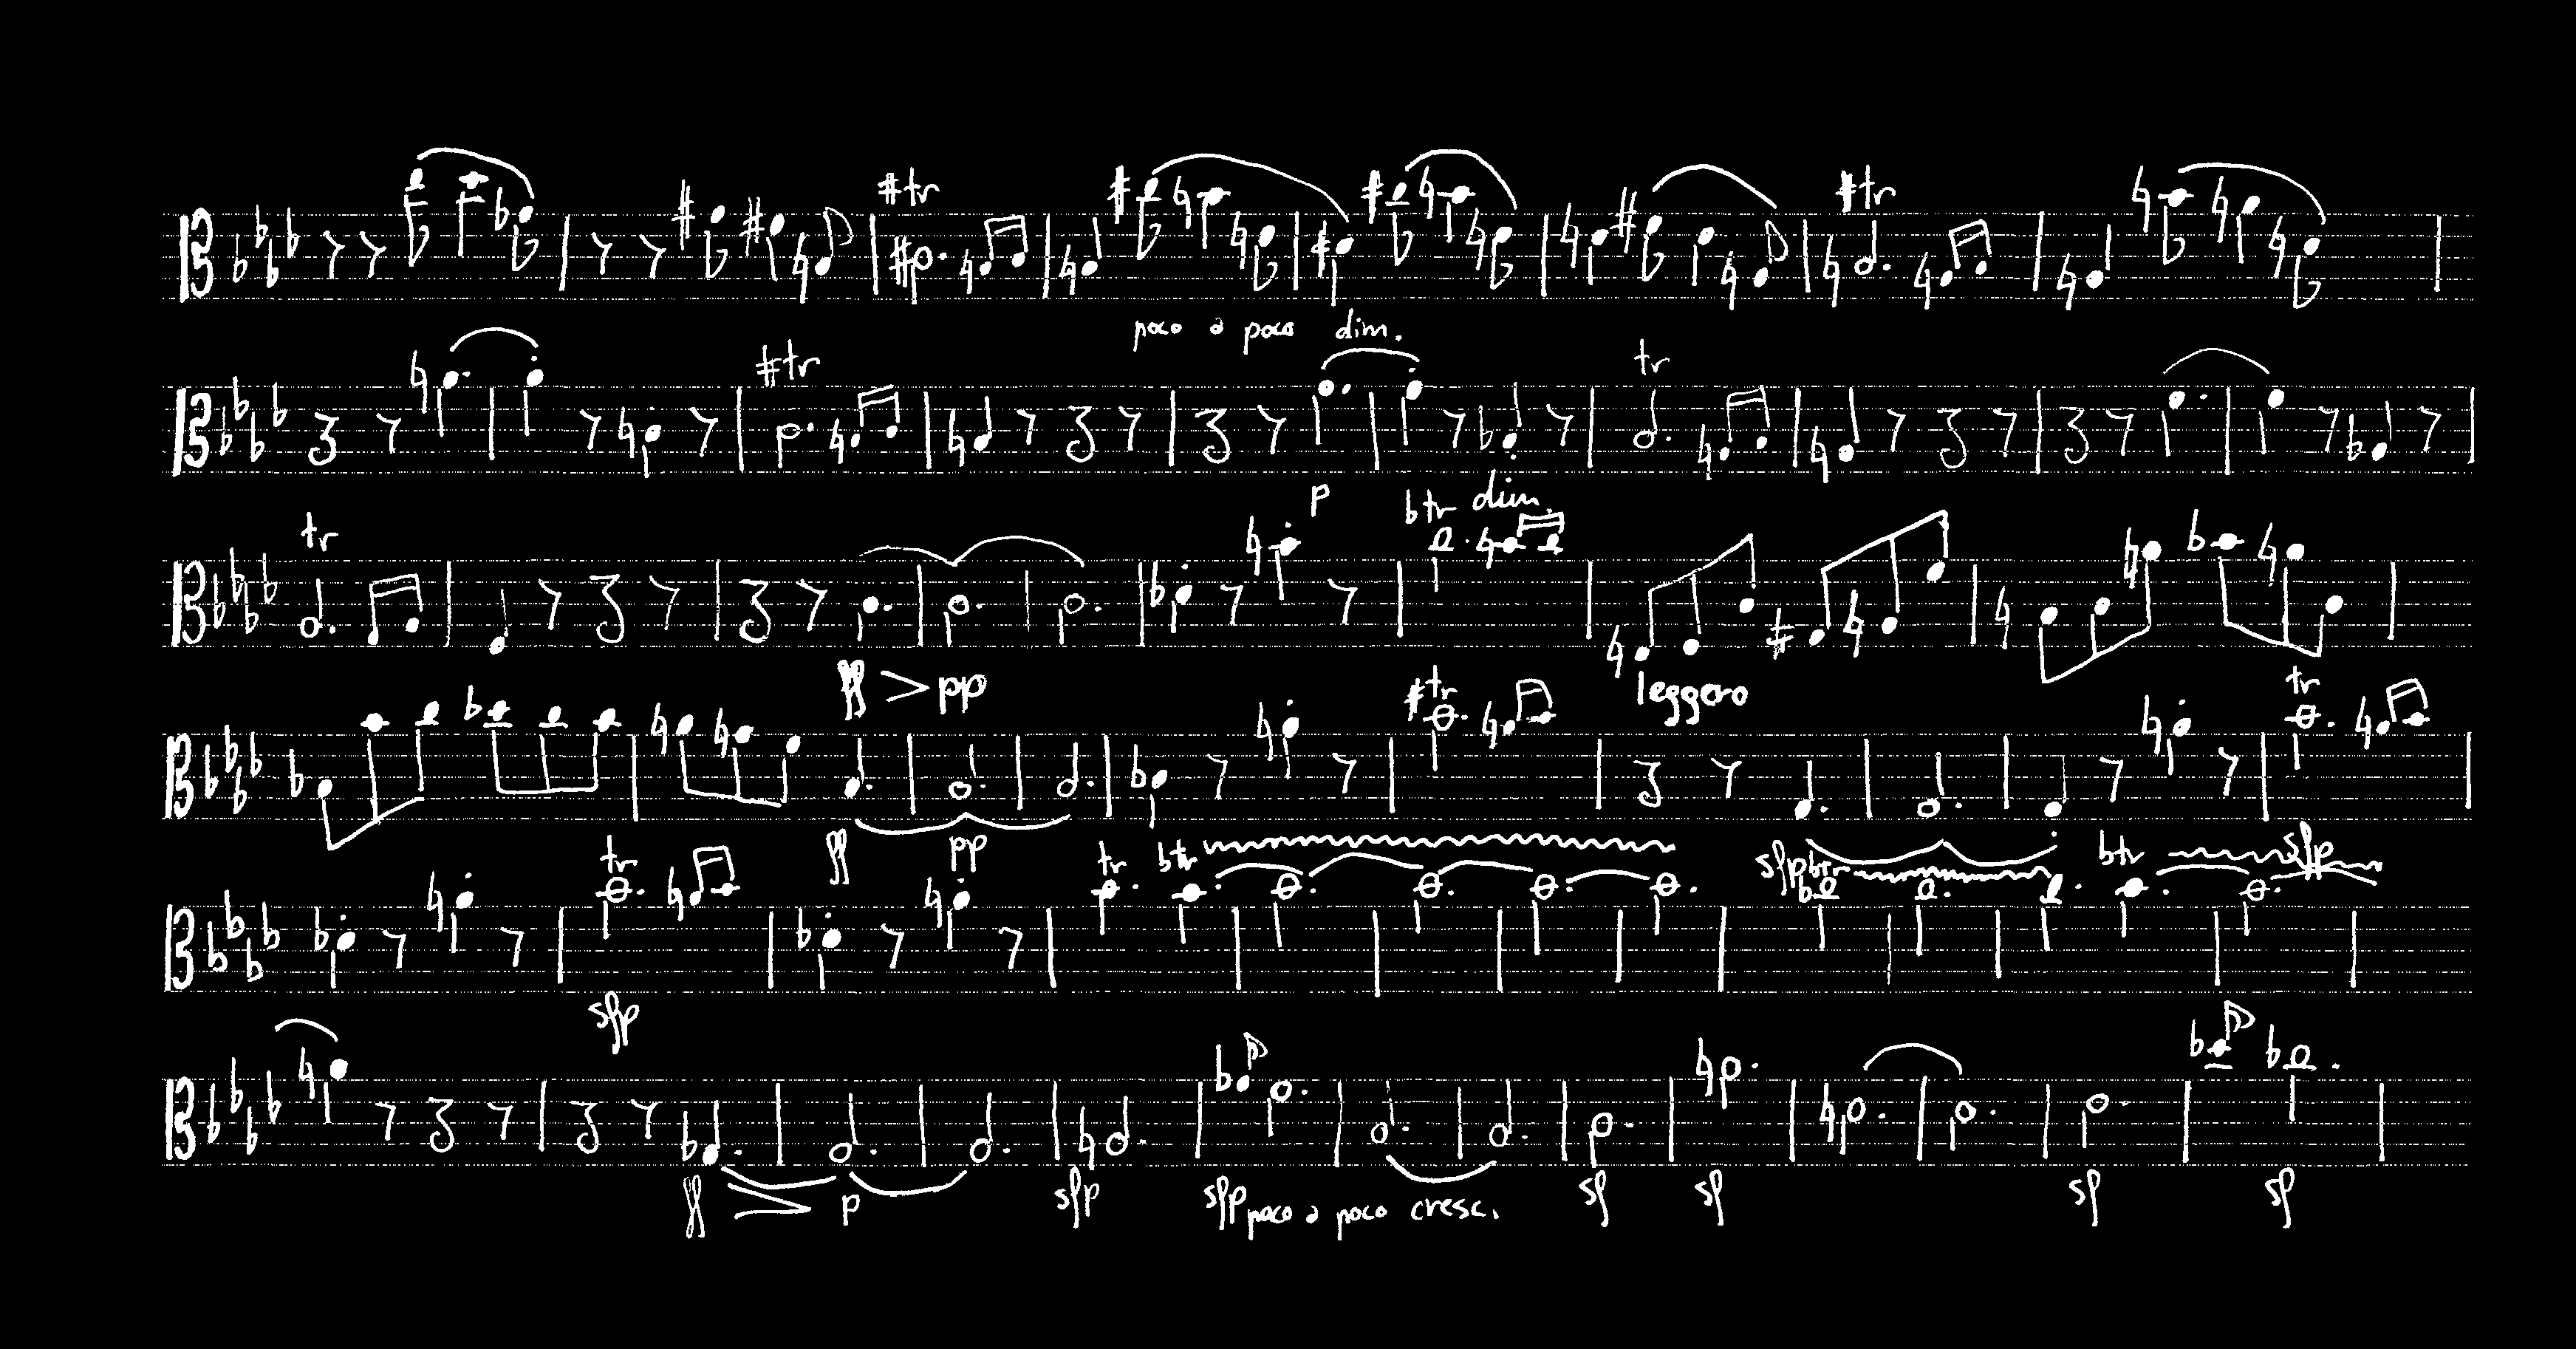 tr tr
poco a poco dim.
tr tr
p
tr tr dim.
ff pp leggero
tr tr
ff pp
tr tr tr sfp tr tr sfp
sfp
ff p sfp sfp poco a poco cresc. sf sf sf sf